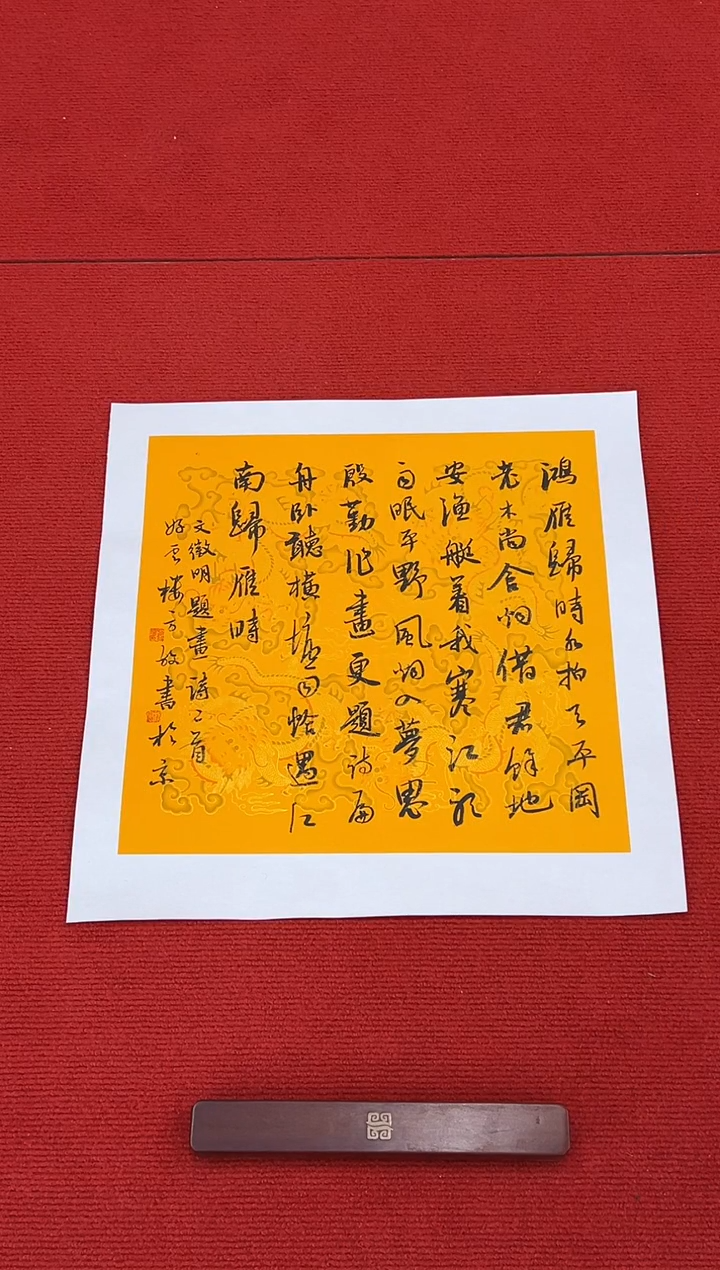 鴻雁歸時水拍天平岡
老木尚含烟借君餘地
安渔艇着我寒江聽
雨眠平野風烟入夢思
殷勤作畫更題詩扁
舟卧聽橫塘雨恰遇江
南歸雁時
文徵明題畫詩二首
書於京